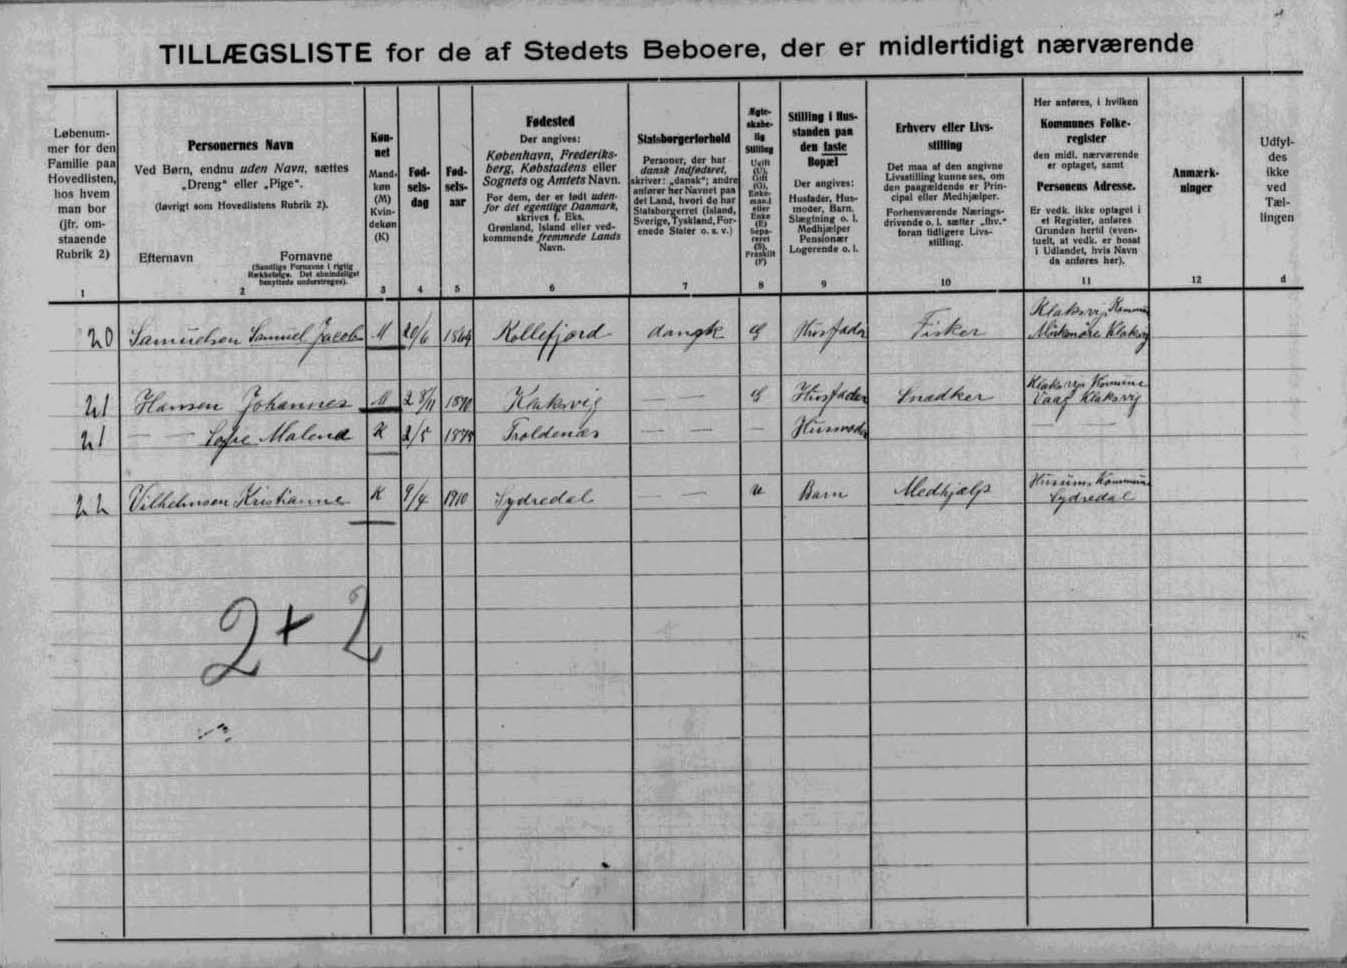 TILLÆGSLISTE for de af Stedets Beboere, der er midlertidigt nærværende
Løbenum-
mer for den
Familie paa
Hovedlisten,
hos hvem
man bor
(jfr. om-
staaende
Rubrik 2)
1
Personernes Navn
Ved Børn, endnu uden Navn, sættes
„Dreng“ eller „Pige“.
(Iøvrigt som Hovedlistens Rubrik 2).
Efternavn Fornavne
(Samtlige Fornavne i rigtig
Rækkefølge. Det almindeligst
benyttede understreges).
2
Køn-
net
Mand-
køn
(M)
Kvin-
dekøn
(K)
3
Fød-
sels-
dag
4
Fød-
sels-
aar
5
Fødested
Der angives:
København, Frederiks-
berg, Købstadens eller
Sognets og Amtets Navn.
For dem, der er født uden-
for det egentlige Danmark,
skrives f. Eks.
Grønland, Island eller ved-
kommende fremmede Lands
Navn.
6
Statsborgerforhold
Personer, der har
dansk Indfødsret,
skriver: „dansk“; andre
anfører her Navnet paa
det Land, hvori de har
Statsborgerret (Island,
Sverige, Tyskland, For-
enede Stater o. s. v.)
7
Ægte-
skabe-
lig
Stilling
Ugift
(U),
Gift
(G),
Enke-
mand
eller
Enke
(E)
Sepa-
reret
(S),
Fraskilt
(F)
8
Stilling i Hus-
standen paa
den faste
Bopæl
Der angives:
Husfader, Hus-
moder, Barn,
Slægtning o. l.
Medhjælper
Pensionær
Logerende o. l.
9
Erhverv eller Livs-
stilling
Det maa af den angivne
Livsstilling kunne ses, om
den paagældende er Prin-
cipal eller Medhjælper.
Forhenværende Nærings-
drivende o. l. sætter „fhv.“
foran tidligere Livs-
stilling.
10
Her anføres, i hvilken
Kommunes Folke-
register
den midl. nærværende
er optaget, samt
Personens Adresse.
Er vedk. ikke optaget i
et Register, anføres
Grunden hertil (even-
tuelt, at vedk. er bosat
i Udlandet, hvis Navn
da anføres her).
11
Anmærk-
ninger
12
Udfyl-
des
ikke
ved
Tæl-
lingen
d
20 Samuelsen Samuel Jacob M 20/6 1864 Kollefjord dansk G Husfader Fisker Klaksvig Kommune
Klaksvig
21 Hansen Johannes M 28/11 1870 Klaksvig — — G Husfader Snedker Klaksvigs Komune
Vaag Klaksvig
21 — — Sofie Malene K 2/5 1875 Troldenæs — — — Husmoder — —
22 Vilhelmsen Kristianne K 9/4 1910 Sydredal — — u Barn Medhjælp Husums Kommune
Sydredal
2 + 2